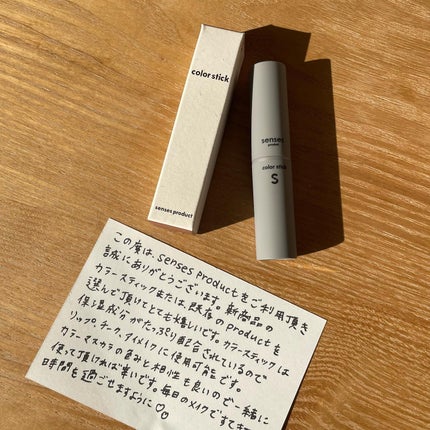 color stick
senses product
senses
product
color stick
S
この度は、senses productをご利用頂き
誠にありがとうございます。新商品の
カラースティックまたは、既存のproductを
選んで頂けてとても嬉しいです。カラースティックは
保湿成分がたっぷり配合されているので
リップ、チーク、アイメイクに使用可能です。
カラーマスカラの色みと相性も良いので一緒に
使って頂ければ幸いです。毎日のメイクですてきな
時間を過ごせますように♡